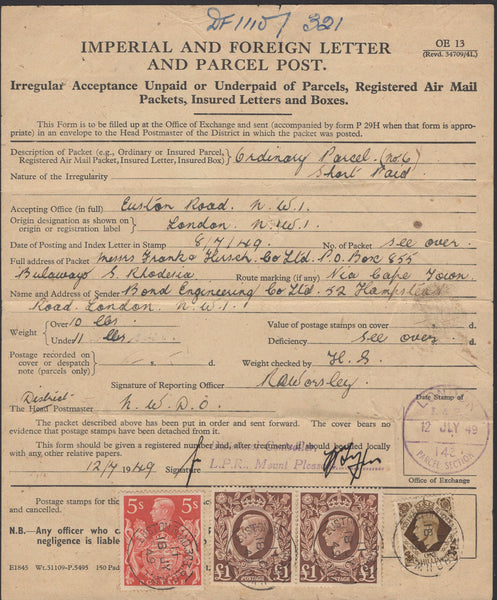 DF 1115/ 321
OE 13
(Revd. 34709/41.)
IMPERIAL AND FOREIGN LETTER
AND PARCEL POST.
Irregular Acceptance Unpaid or Underpaid of Parcels, Registered Air Mail
Packets, Insured Letters and Boxes.
This Form is to be filled up at the Office of Exchange and sent (accompanied by form P 29H when that form is appro-
priate) in an envelope to the Head Postmaster of the District in which the packet was posted.
Description of Packet (e.g., Ordinary or Insured Parcel, Registered Air Mail Packet, Insured Letter, Insured Box) Ordinary Parcel (no 6)
Nature of the Irregularity Short Paid
Accepting Office (in full) Euston Road. N.W.1.
Origin designation as shown on origin or registration label London. N.W.1.
Date of Posting and Index Letter in Stamp 8/7/49. No. of Packet See over.
Full address of Packet Messrs Franks Hirsch Co Ltd. P.O. Box 855
Bulawayo S Rhodesia Route marking (if any) Via Cape Town.
Name and Address of Sender Bond Engineering Co Ltd. 52 Hampstead
Road. London. N.W.1.
Weight Over 10 lbs Value of postage stamps on cover s. d.
Under 11 lbs. Deficiency See over. d.
Postage recorded on cover or despatch note (parcels only) s. d. Weight checked by H.S.
Signature of Reporting Officer Worsley
District
The Head Postmaster N.W.D.O
Date Stamp of
LONDON
12 JLY 49
PARCEL SECTION
Office of Exchange
The packet described above has been put in order and sent forward. The cover bears no
evidence that postage stamps have been detached from it.
This form should be given a registered number and, after treatment, it should be filed locally
with any other relative papers.
12/7 1949 Signature
L.P.R., Mount Pleasant
Postage stamps for the
and cancelled.
N.B. Any officer who
negligence is liable
E1845 Wt.31109-P.5495 150 Pad
5s 5s
POSTAGE
£1 POSTAGE £1
£1 POSTAGE £1
ONE SHILLING